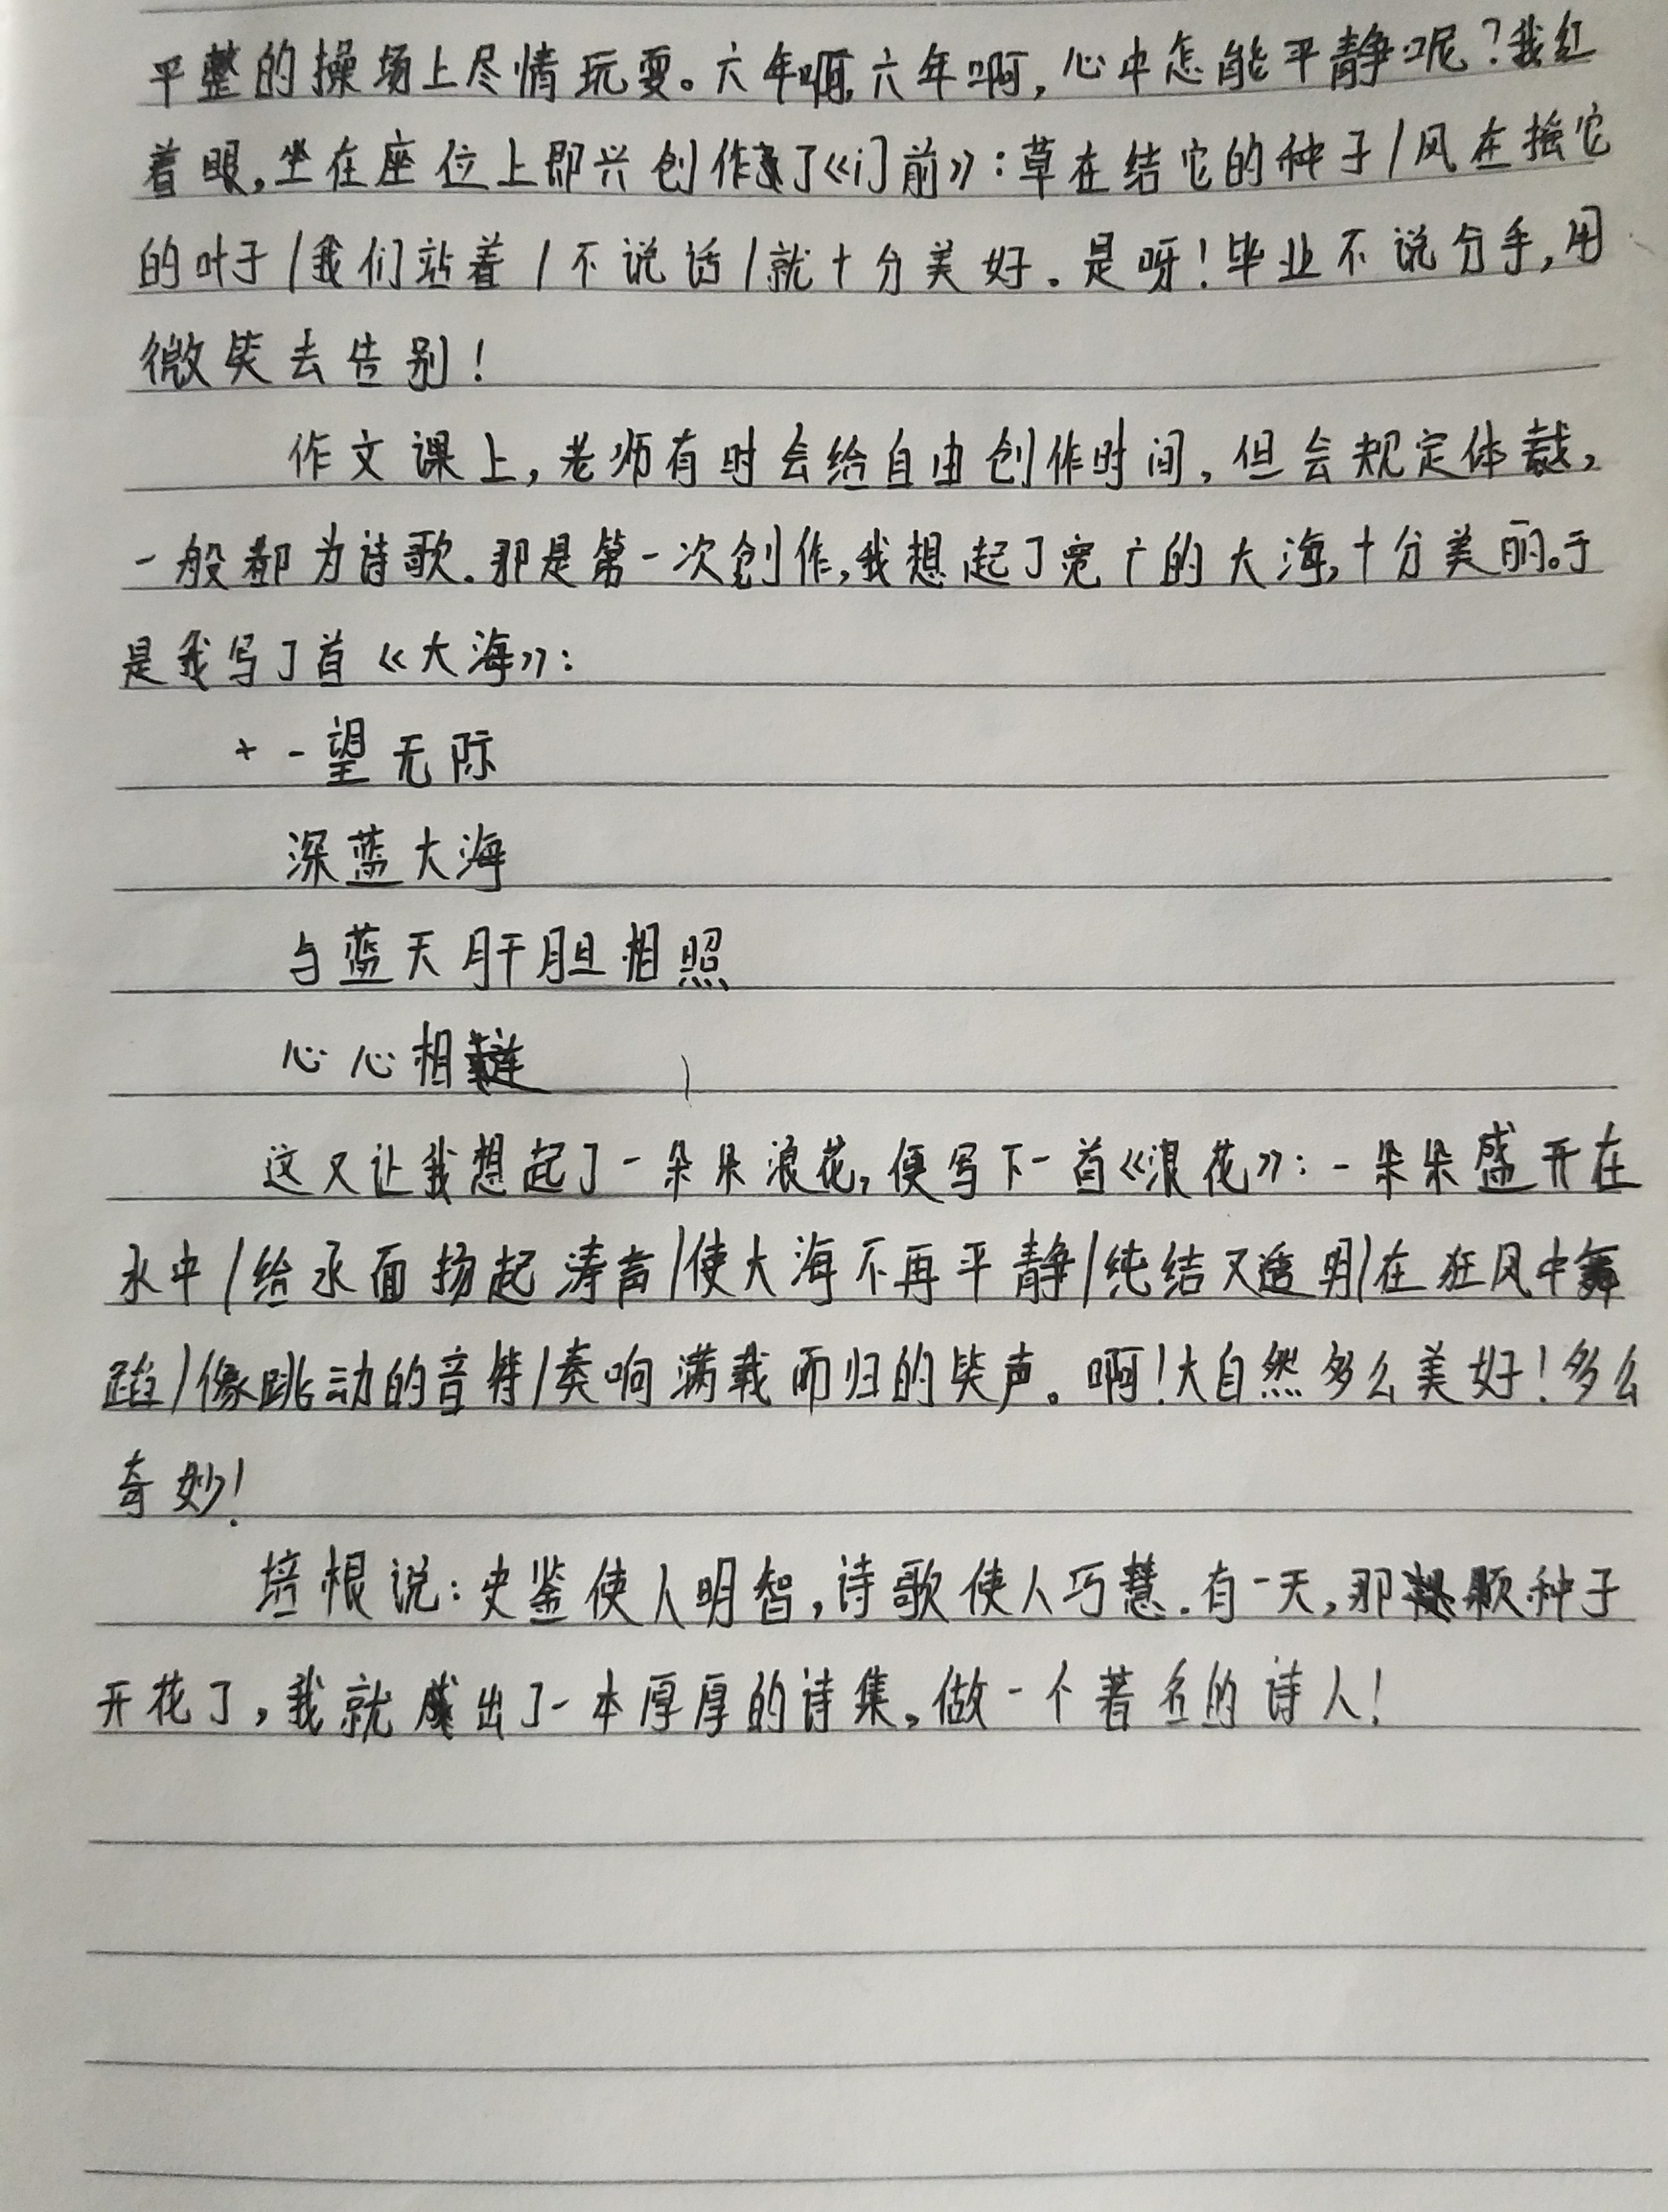 平整的操场上尽情玩耍。六年啊,六年啊,心中怎能平静呢?我红
着眼,坐在座位上即兴创作了《门前》:草在结它的种子/风在摇它
的叶子/我们站着/不说话/就十分美好.是呀!毕业不说分手,用
微笑去告别!
作文课上,老师有时会给自由创作时间,但会规定体裁,
一般都为诗歌.那是第一次创作,我想起了宽广的大海,十分美丽。于
是我写了首《大海》:
一望无际
深蓝大海
与蓝天肝胆相照
心心相连
这又让我想起了一朵朵浪花,便写下一首《浪花》:一朵朵盛开在
水中/给水面扬起涛声/使大海不再平静/纯结又透明/在狂风中舞
蹈/像跳动的音符/奏响满载而归的笑声。啊!大自然多么美好!多么
奇妙!
培根说:史鉴使人明智,诗歌使人巧慧.有一天,那颗种子
开花了,我就成出了一本厚厚的诗集,做一个著名的诗人!